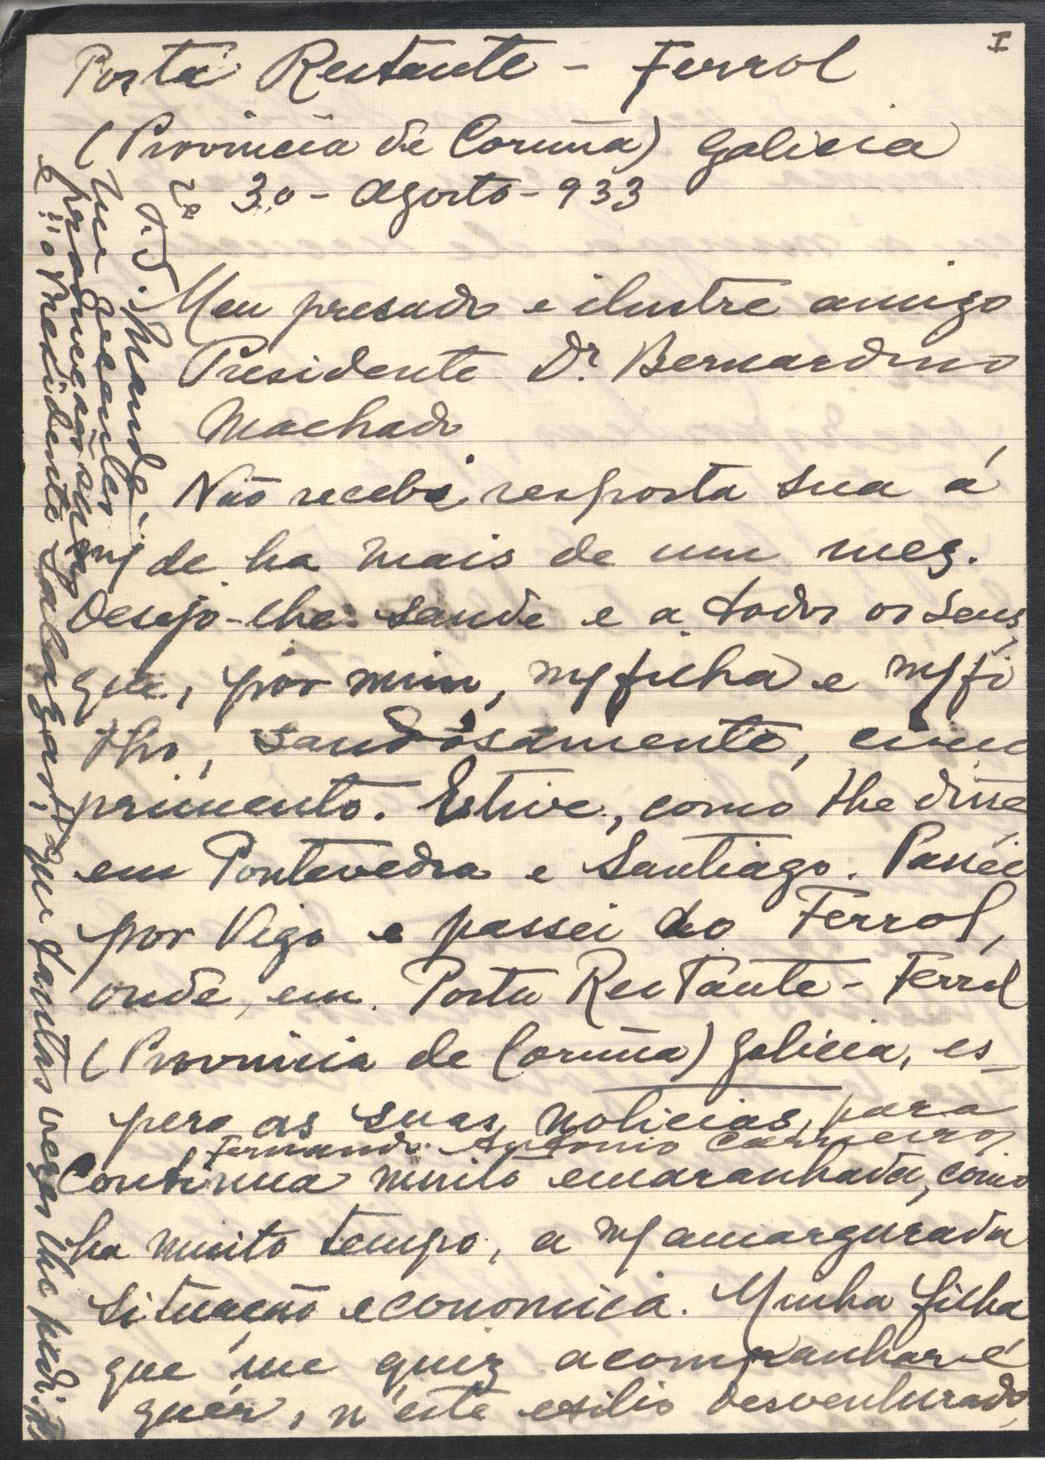 I
Posta Restante - Ferrol
(Provincia de Coruña) Galicia
30 - Agosto - 933
Meu presado e ilustre amigo
Presidente Dr. Bernardino
Machado
Não recebi resposta sua á
de ha mais de um mez.
Desejo-lhe saude e a todos os seus
que, por mim, m/ filha e m/ fi
lho, saudosamente, cum
primento. Estive, como lhe disse
em Pontevedra e Santiago. Passei
por Vigo e passei ao Ferrol,
onde, em Posta Restante - Ferrol
(Provincia de Coruña) Galicia, es_
pero as suas noticias, para
Fernando Antonio Carneiro
Continua muito emaranhada, como
ha muito tempo, a m/ amargurada
situação economica. Minha filha
que me quiz acompanhar e
quer, n'este exilio desventurado,
P.S. Mande-
me
procuração
e o Presidente que tantas vezes lhe pedi.